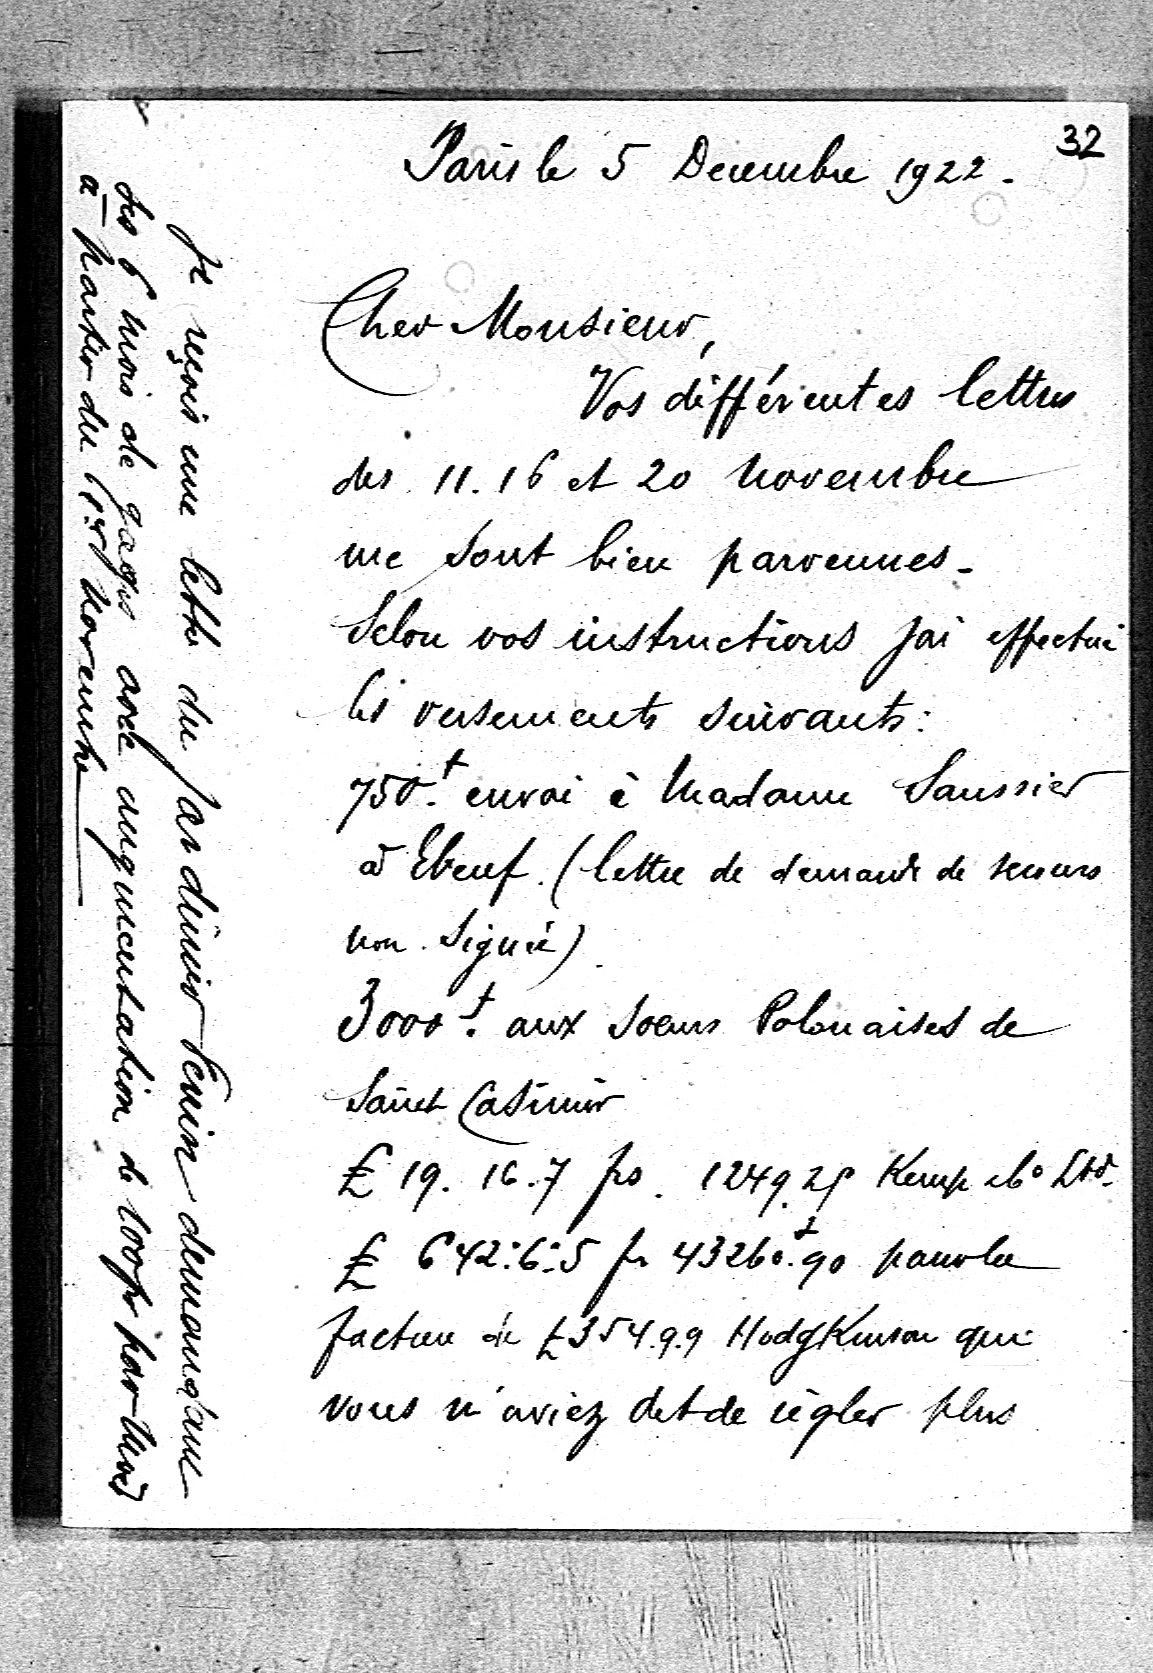 32
Paris le 5 Decembre 1922.
Cher Monsieur,
Vos différentes lettres
des 11. 16 et 20 novembre
me sont bien parvenues.
Selon vos instructions j'ai effectué
les versements suivants:
750.f envoi à Madame Saussier
à Elbeuf. (lettre de demande de secours
non signée)
3000f. aux Soeurs Polonaises de
Saint Casimir
£ 19. 16. 7 frs. 1249.25 Kemp & Co Ltd.
£ 642:6:5 fr 43260f.90 pour la
facture de £354.9.9 Hodgkinson que
vous m'aviez dit de régler plus
Je reçois une lettre du jardinier demandant
ses 6 mois de gages avec augmentation de 100fr par mois
à partir du 1er novembre